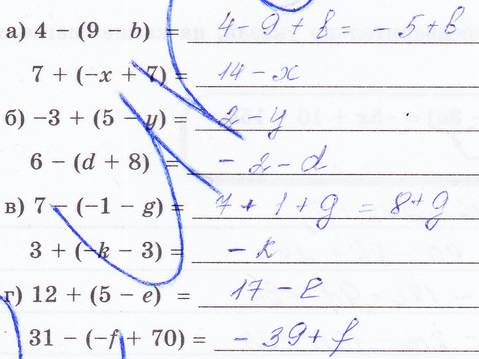 а) 4 − (9 − b) = 4 − 9 + b = − 5 + b
7 + (−x + 7) = 14 − x
б) −3 + (5 − y) = 2 − y
6 − (d + 8) = − 2 − d
в) 7 − (−1 − g) = 7 + 1 + g = 8 + g
3 + (−k − 3) = − k
г) 12 + (5 − e) = 17 − e
31 − (−f + 70) = − 39 + f